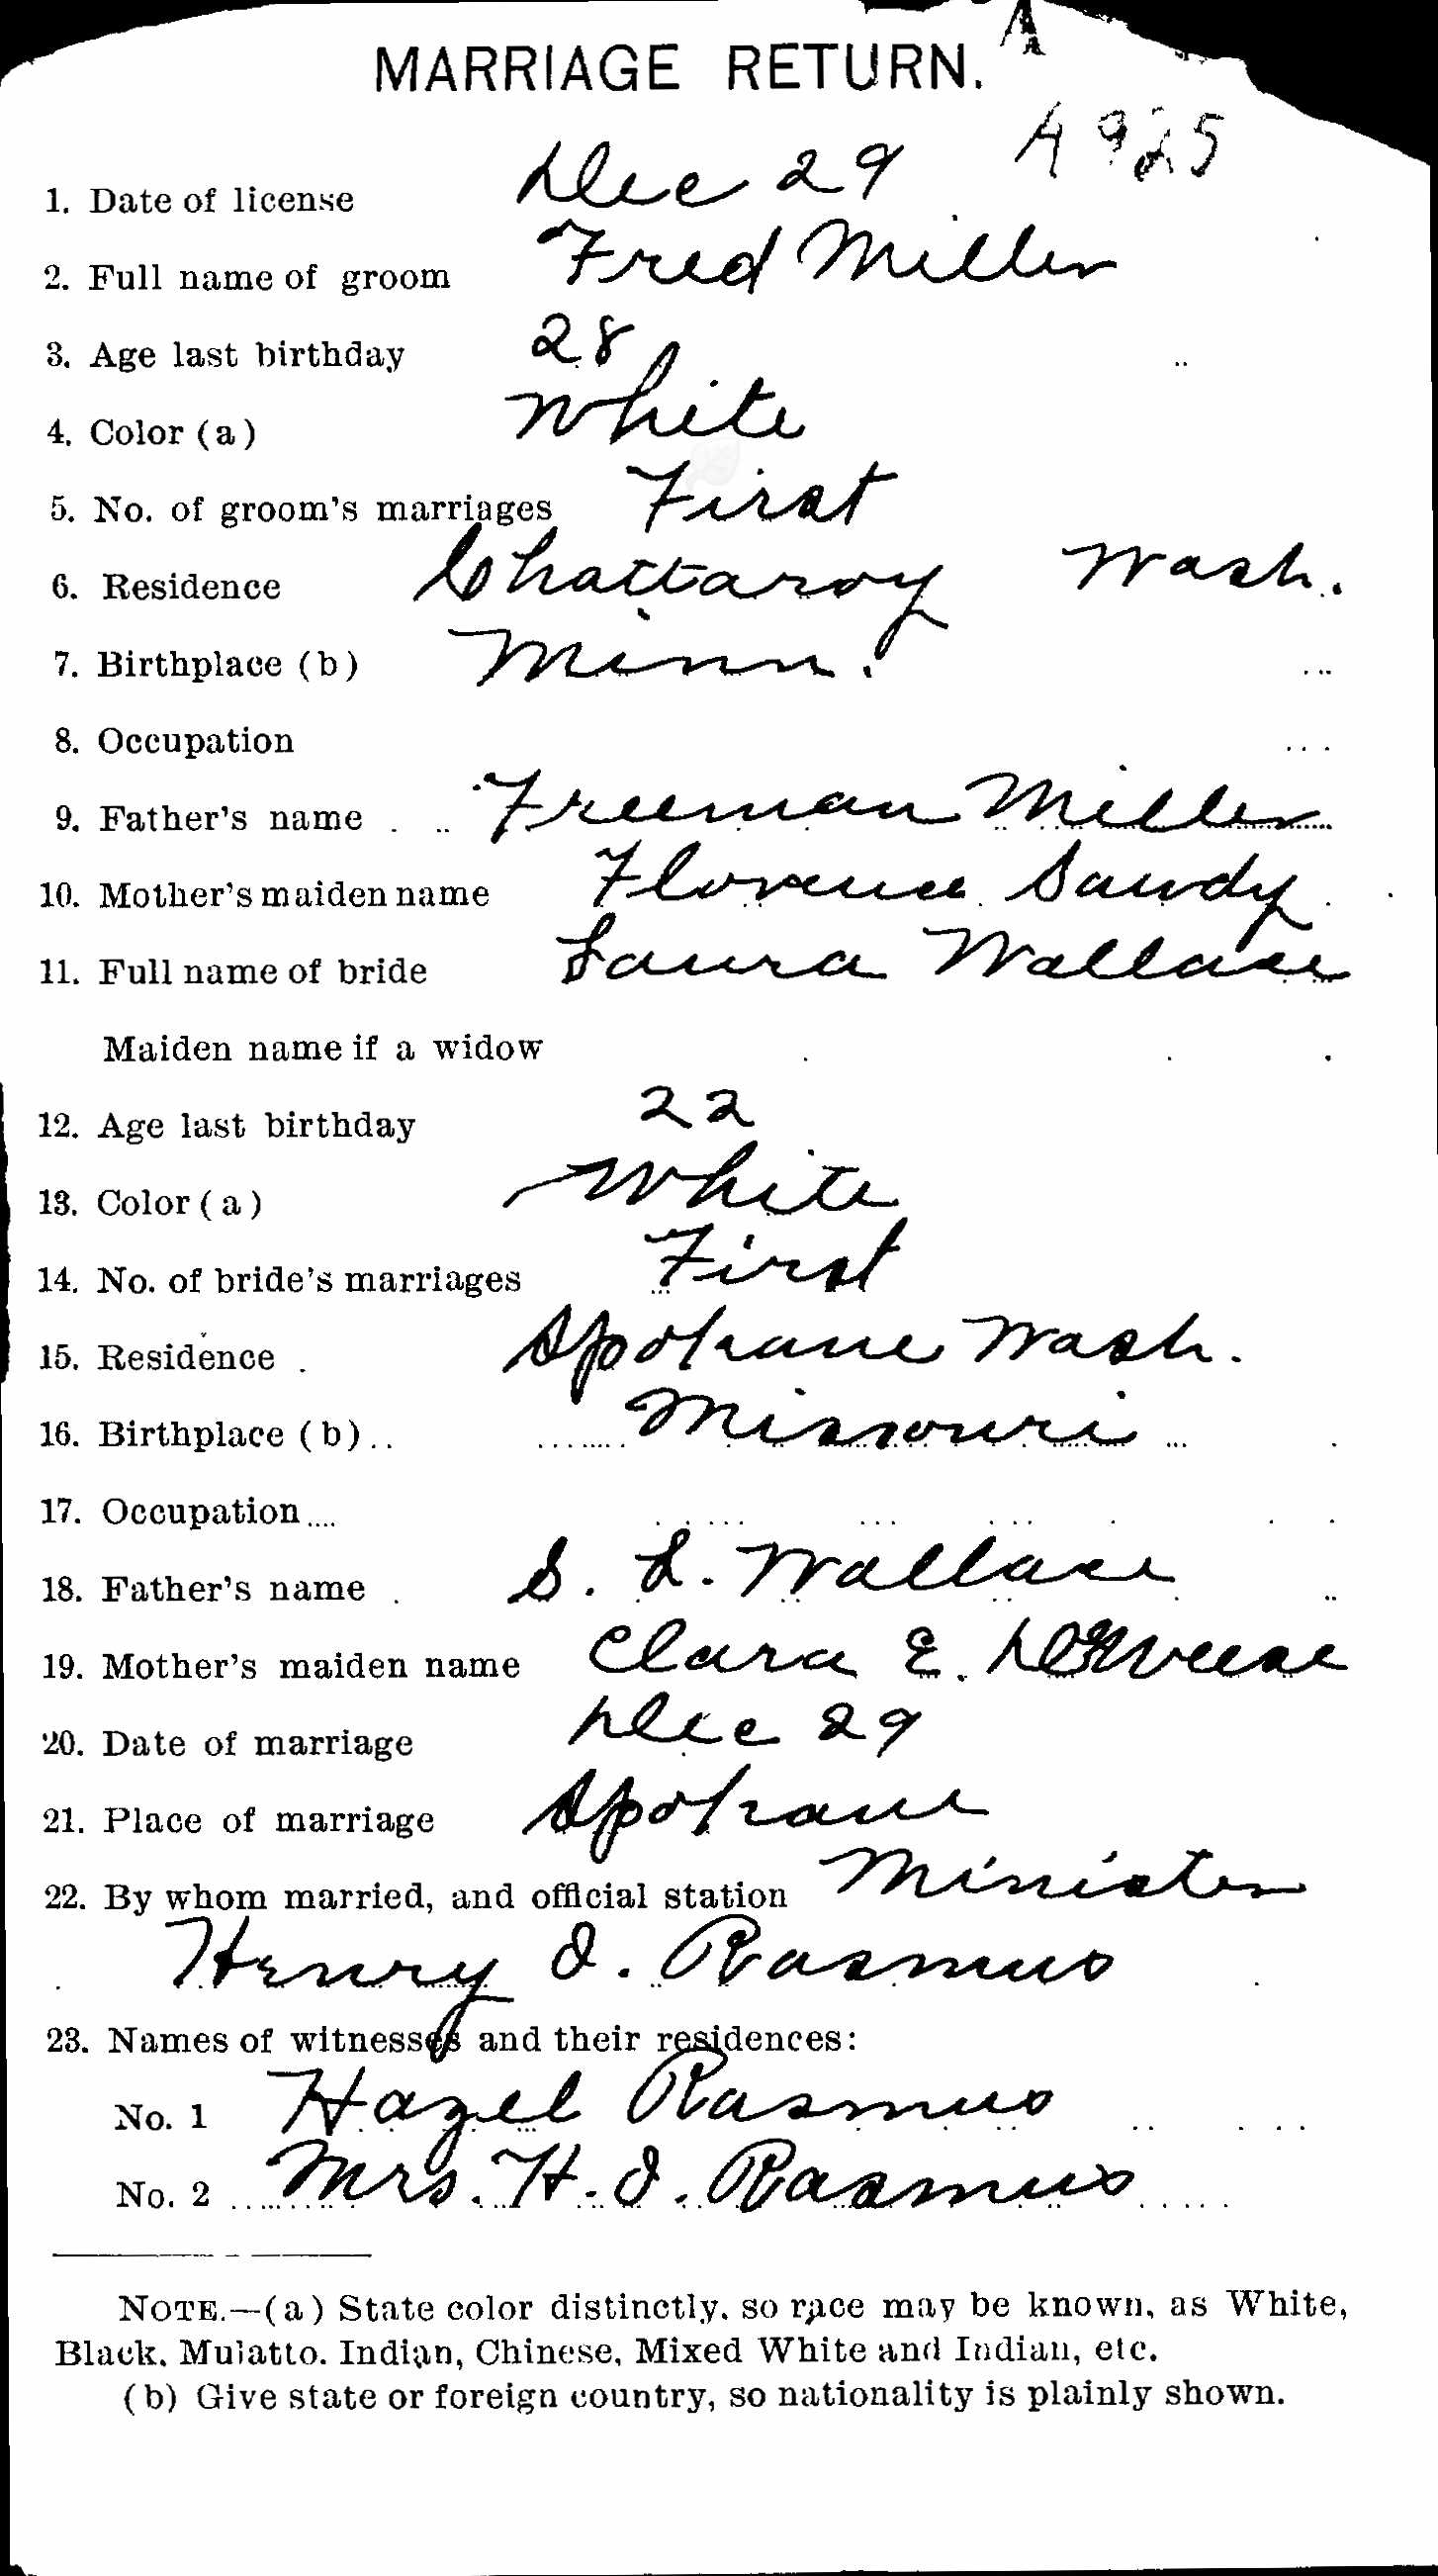 MARRIAGE RETURN. A
A 925
1. Date of license Dec 29
2. Full name of groom Fred Miller
3. Age last birthday 28
4. Color (a) White
5. No. of groom's marriages First
6. Residence Chattaroy Wash.
7. Birthplace (b) Minn.
8. Occupation
9. Father's name Freeman Miller
10. Mother's maiden name Florence Sawdy
11. Full name of bride Laura Wallace
Maiden name if a widow
12. Age last birthday 22
13. Color (a) White
14. No. of bride's marriages First
15. Residence Spokane Wash.
16. Birthplace (b) Missouri
17. Occupation
18. Father's name S. L. Wallace
19. Mother's maiden name Clara E.
20. Date of marriage Dec 29
21. Place of marriage Spokane
22. By whom married, and official station Minister
Henry I. Rasmus
23. Names of witnesses and their residences:
No. 1 Hazel Rasmus
No. 2 Mrs. H. I. Rasmus
NOTE.—(a) State color distinctly, so race may be known, as White,
Black, Mulatto, Indian, Chinese, Mixed White and Indian, etc.
(b) Give state or foreign country, so nationality is plainly shown.